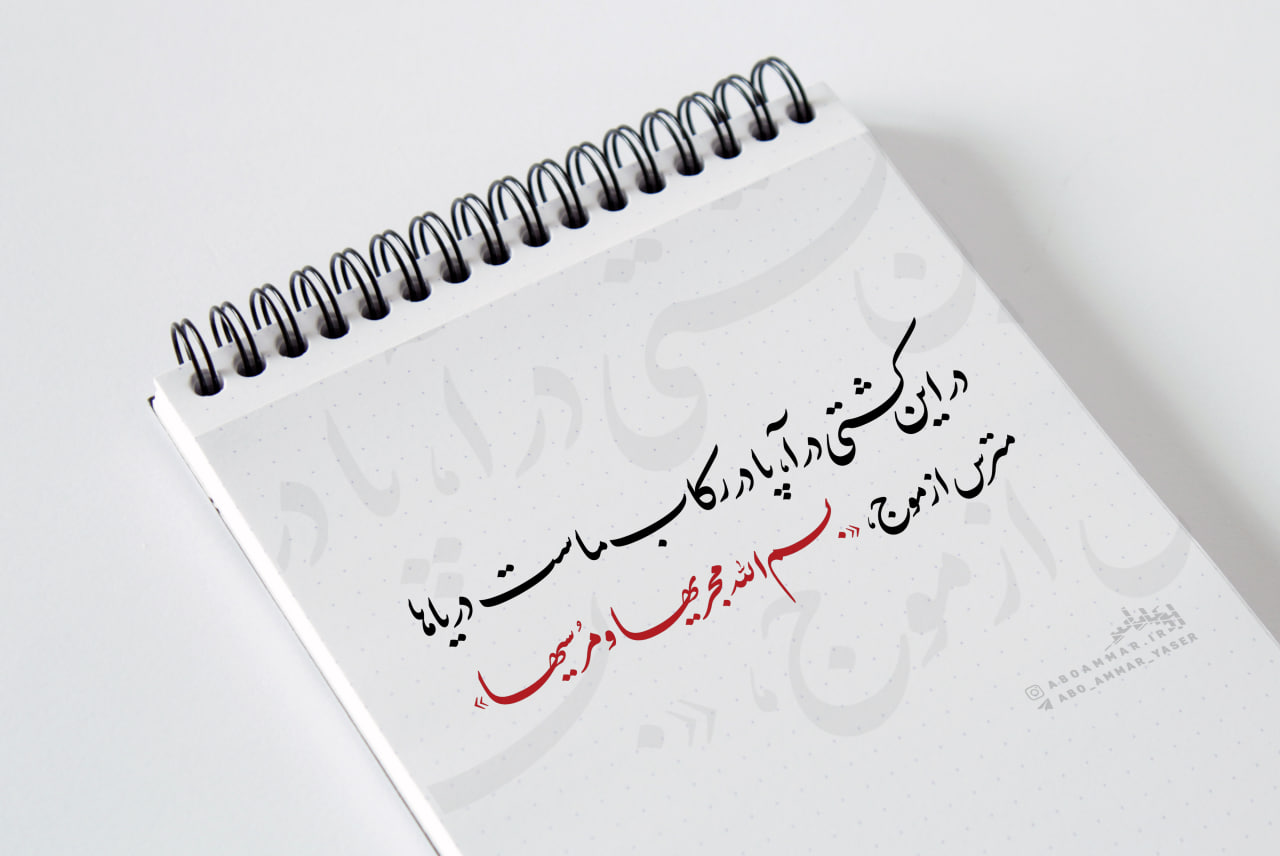 در این کشتی درآ، پا در رکاب ماست دریاها
مترس از موج، «بسم الله مجریها و مُرسیها»
ABOAMMAR_IR
ABO_AMMAR_YASER